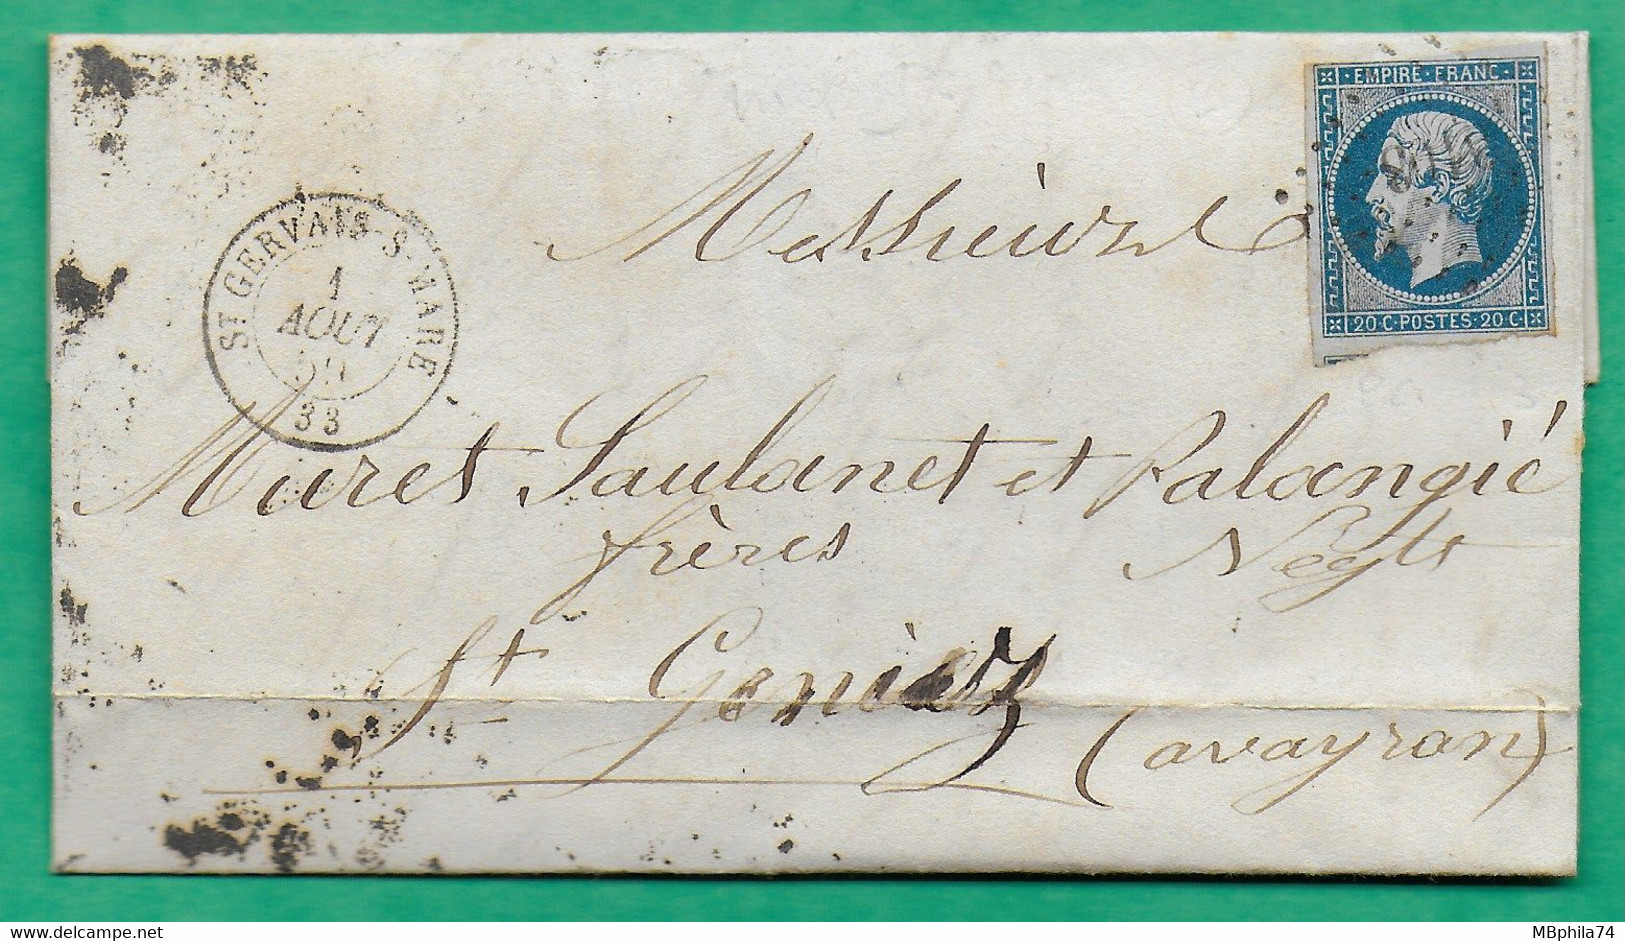 EMPIRE · FRANC ·
20·C·POSTES·20·C·
ST GERVAIS-S-MARE
1
AOUT
33
Messieurs
Muret Saulanet et Palangié
frères Négts
St Geniez
(avayron)
MBphila74